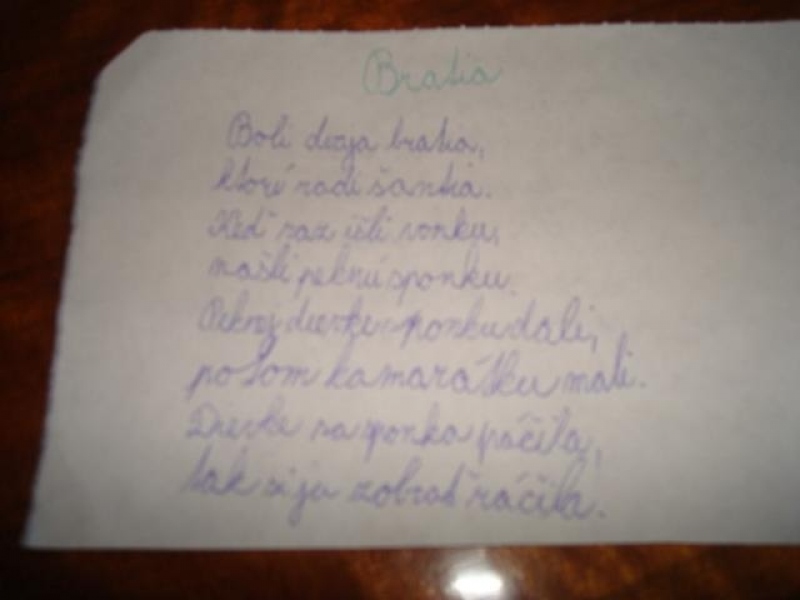 Bratia
Boli dvaja bratia,
ktorí radi šantia.
Keď raz išli vonku,
našli peknú sponku.
Peknej dievke sponku dali,
potom kamarátku mali.
Dievke sa sponka páčila,
tak si ju zobrať ráčila.